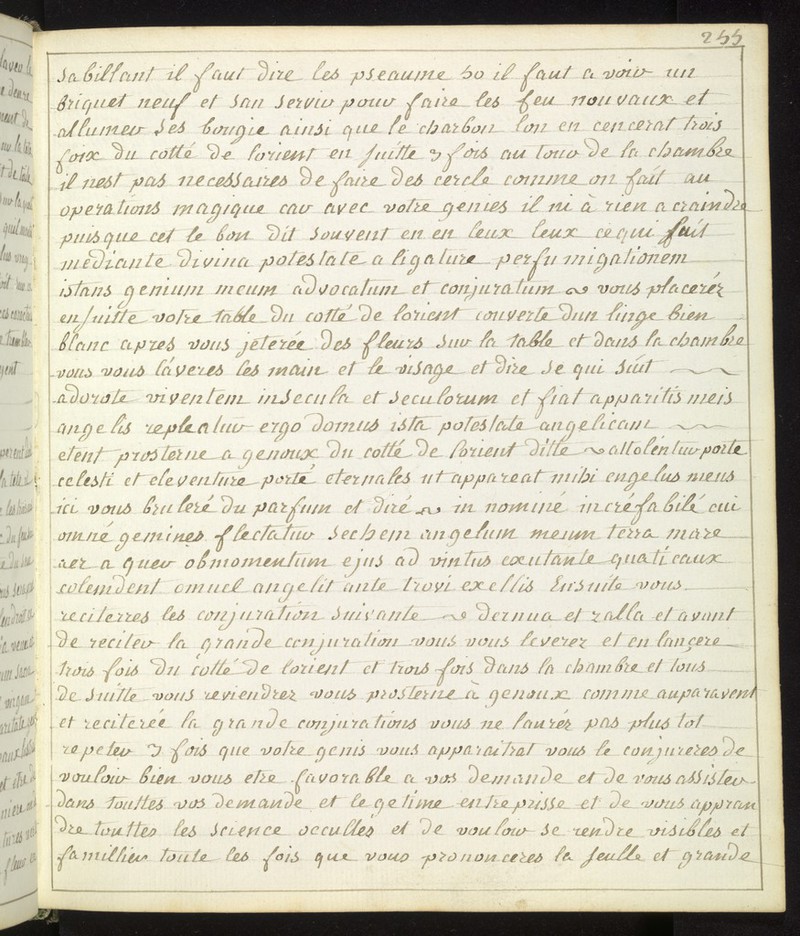 255
sabillant il faut dire les pseaume 50 il faut a voir un
Briquet neuf et san servir pour faire les feu nouvaux et
allumer ses bougie ainsi que le charbon lon en cencerat trois
foix du cotté de lorient en suitte 3 fois au tour de la chambre
il nest pas necessaires de faire des cercle comme on fait au
operations magique car avec votre genies il ni à rien a craindre
puisque cet le bon dit souvent en en leux leux ce qui suit
mediante divina potestate a ligature perfumigationem
istans genium meum advocatum et conjuratum ~ vous placeréz
en suitte votre table du cotté de lorient couverte dun linge bien
blanc apres vous jeterée des fleurs sur la table et dans la chambre
vous vous láveres les main et le visage et dire se qui suit
adorote viventem insecula et seculorum et fiat apparitis meis
angelis repleatur ergo domus ista potestate angelicam
etent prosterne a genoux du cotté de lorient ditte ~ attolentur porte
celesti et eleventure porté eternales ut appareat mihi engelus meus
ici vous bruleré du parfum et diré ~ in nominé incréfabilé cui
omné gemines flectatur sechem angelum meum terra mare
aer a quer obmomentum ejus ad vintus exutante quaticaux
colemdent omuel angelit ante trovi exellis Ensuite vous
reciterres les conjuration suivante ~ dernua et zalla et avant
de reciter la grande conjuration vous vous leverez et en lançere
trois fois du cotté de lorient et trois fois dans la chambre et tous
de suitte vous reviendrez vous prosterne à genoux comme auparavent
et reciterée la grande conjurations vous ne lauréz pas plus tot
repeter 3 fois que votre genis vous apparaitrat vous le conjureres de
vouloir bien vous etre favorable a vos demande et de vous assister
dans touttes vos demande et legetime entreprisse et de vous appran
dre touttes les science occultés et de vouloir se rendre visibles et
famillier toute les fois que vous prononceres la seulle et grande